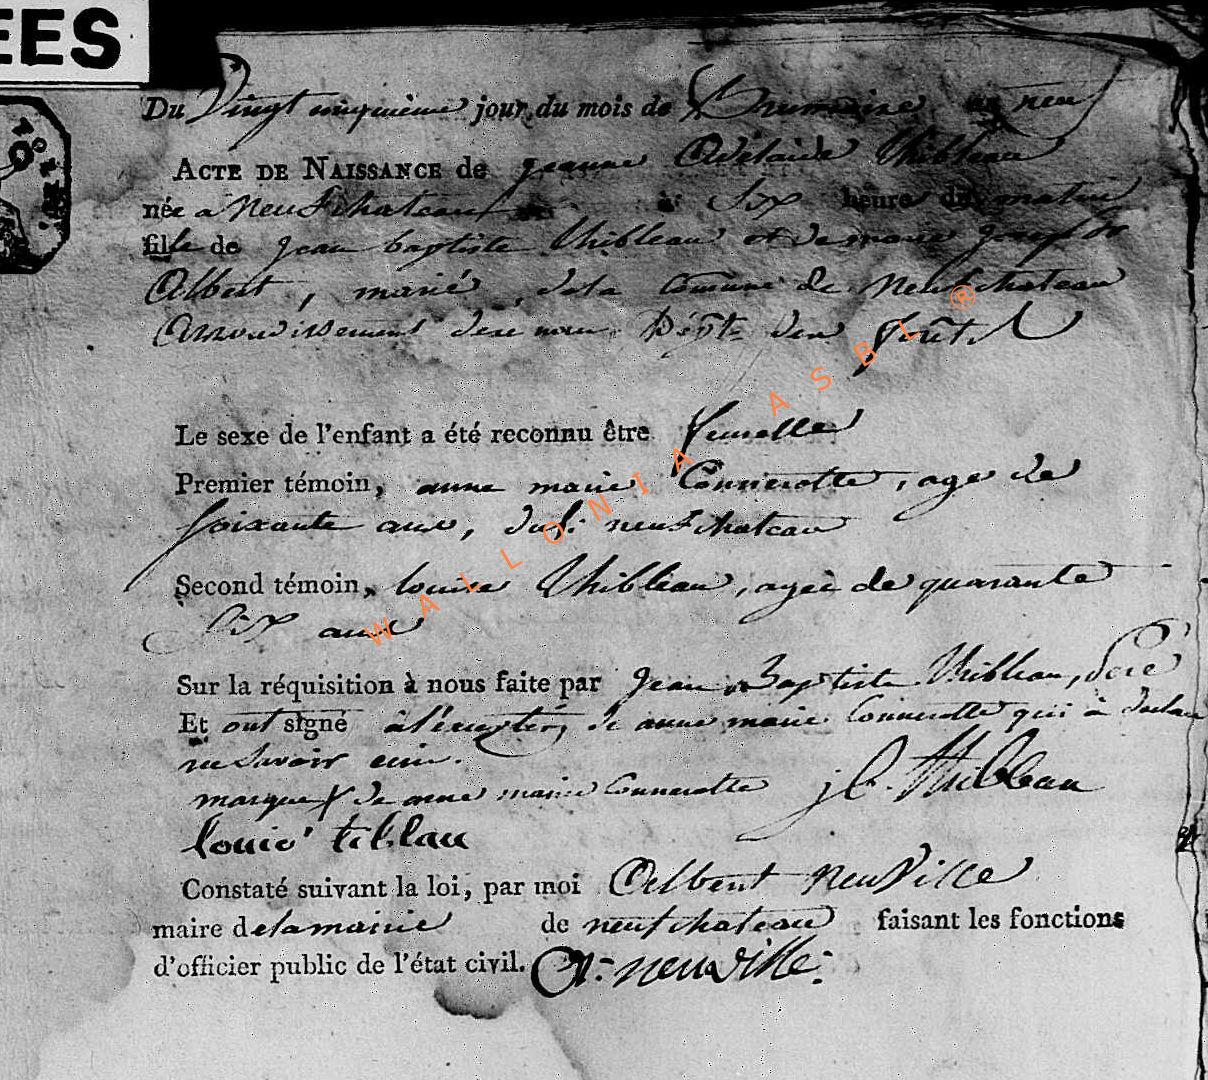 EES
Du Vingt cinquieme jour du mois de Brumaire an neuf
ACTE DE NAISSANCE de jeanne Adelaide thibleau
née a Neufchateau à Six heure du matin
fille de jean baptiste thibleau et de marie josephe
Albert, marié, de la Comune de Neufchateau
Arrondissement Dépt. des forêts
Le sexe de l'enfant a été reconnu être femelle
Premier témoin, anne marie Connerotte, age de
soixante ans, neufchateau
Second témoin, louise thibleau, agée de quarante
six ans
Sur la réquisition à nous faite par jean Baptiste thibleau, Pere
Et ont signé à l'exception de anne marie Connerotte qui à declaré
ne savoir ecrire.
marque de anne marie Connerotte j b. thibleau
louis tiblau
Constaté suivant la loi, par moi Albert neuville
maire de la mairie de neufchateau faisant les fonctions
d'officier public de l'état civil. A: neuville:
WALLONIA ASBL ®